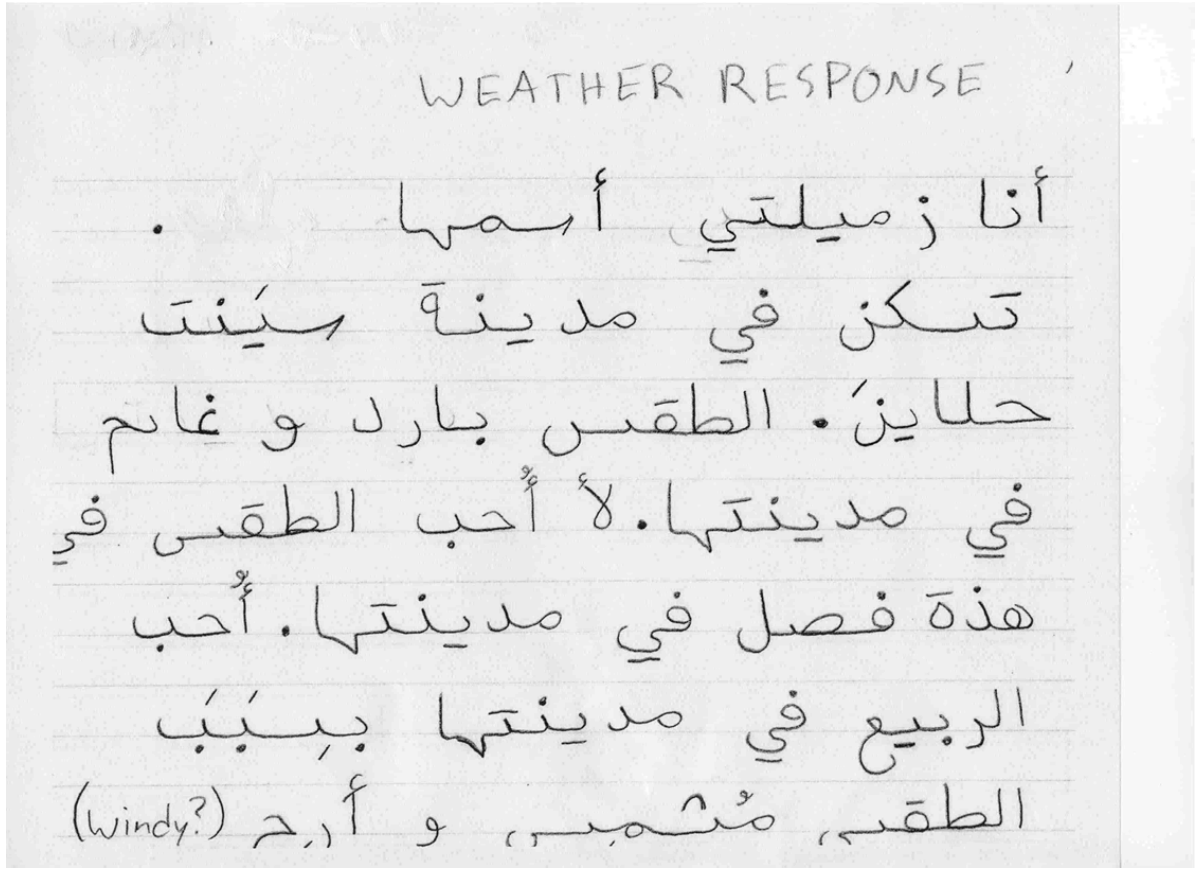 WEATHER RESPONSE
أنا زميلتي أسمها .
تسكن في مدينة سيَنت
حلاينَ. الطقس بارد و غائم
في مدينتها. لأ أُحب الطقس في
هذة فصل في مدينتها. أُحب
الربيع في مدينتها بِسَبَب
الطقس مُشمس و أرح (windy?)